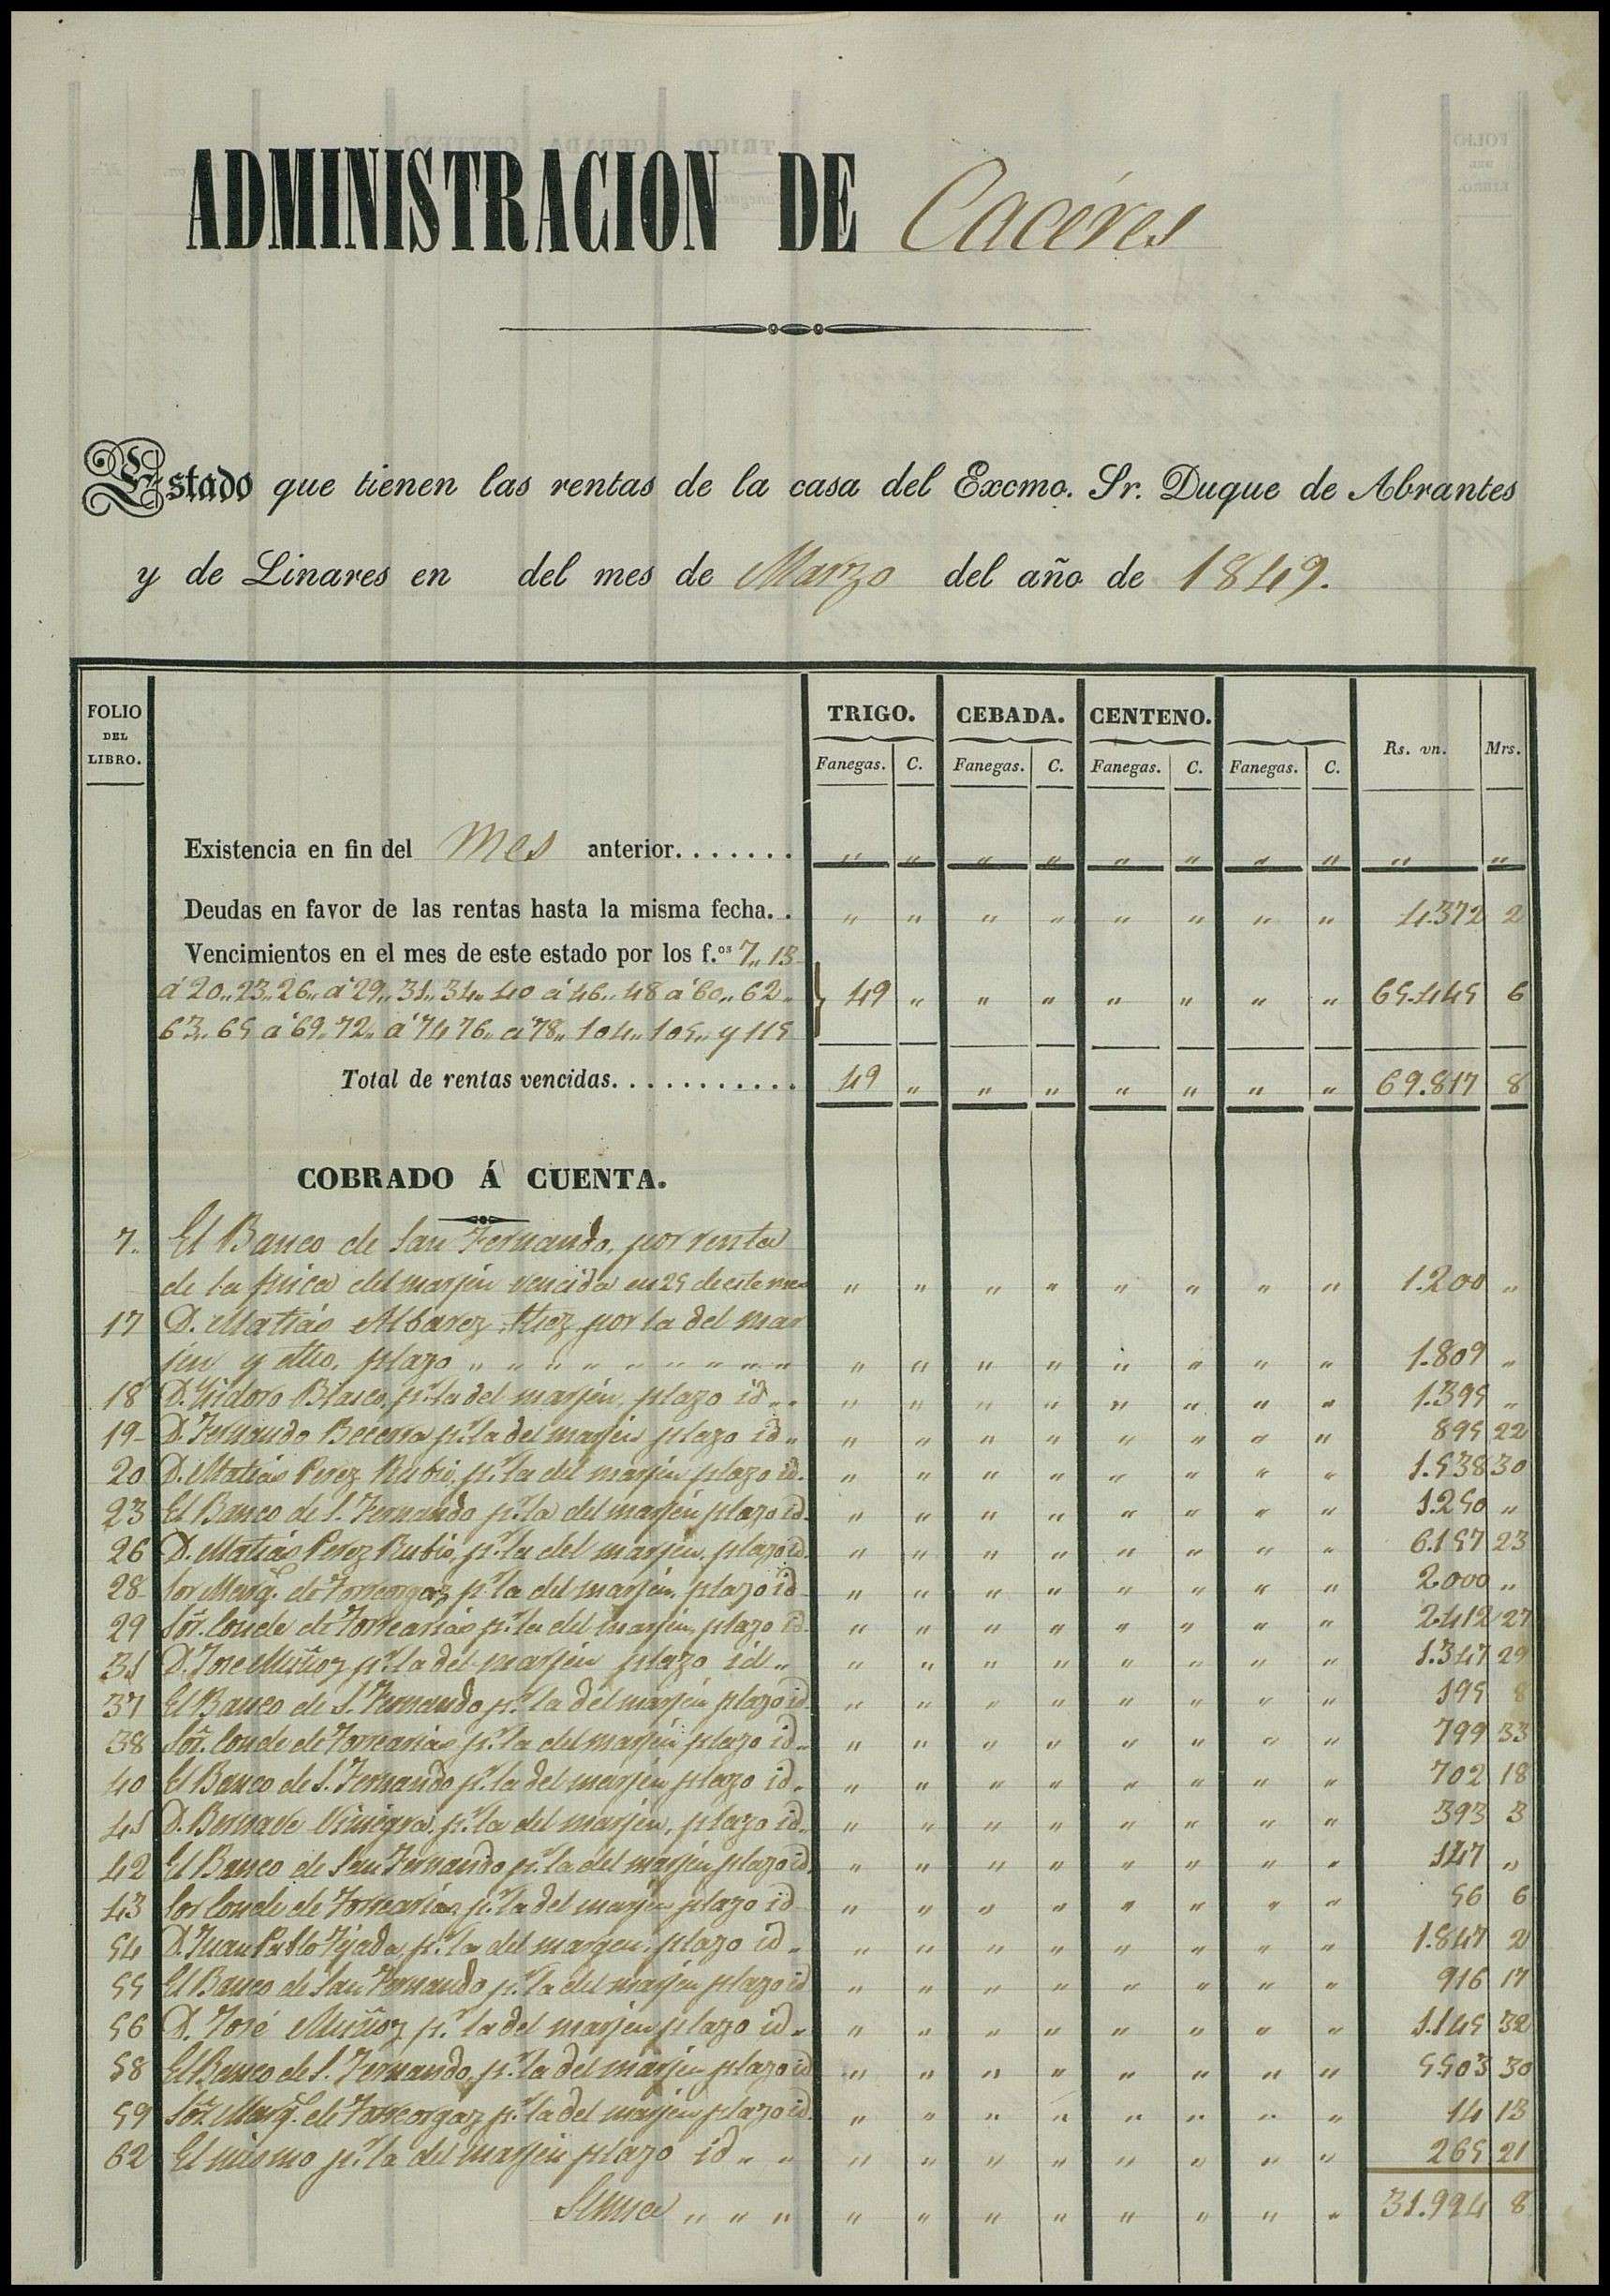 ADMINISTRACION DE Caceres
Estado que tienen las rentas de la casa del Excmo. Sr. Duque de Abrantes
y de Linares en del mes de Marzo del año de 1849.
FOLIO DEL LIBRO. TRIGO. CEBADA. CENTENO. Rs. vn. Mrs.
Fanegas. C. Fanegas. C. Fanegas. C. Fanegas. C.
Existencia en fin del Mes anterior....... „ „ „ „ „ „ „ „ „ „
Deudas en favor de las rentas hasta la misma fecha.. „ „ „ „ „ „ „ „ 4.372 2
Vencimientos en el mes de este estado por los f.os 7„ 13
á 20„ 23„ 26„ á 29„ 31„ 34„ 40 á 46„ 48 á 60„ 62„ 49 „ „ „ „ „ „ „ 65.445 6
63„ 65 á 69„ 72„ á 74 76„ á 78„ 104„ 105„ y 115
Total de rentas vencidas............ 49 „ „ „ „ „ „ „ 69.817 8
COBRADO Á CUENTA.
7„ El Banco de San Fernando, por renta
de la finca del marjen vencida en 25 de este mes „ „ „ „ „ „ „ „ 1.200 „
17 D. Matias Albarez por la del mar
jen y otto, plazo „ „ „ „ „ „ „ „ „ „ „ „ „ „ „ „ „ „ 1.809 „
18 D. Ysidoro Blasco, p.r la del marjen, plazo id „ „ „ „ „ „ „ „ „ „ 1.395 „
19 D. Fernando Becerra p.r la del marjen plazo id „ „ „ „ „ „ „ „ „ 895 22
20 D. Matias Perez Rubio, p.r la del marjen plazo id. „ „ „ „ „ „ „ „ 1.538 30
23 El Banco de S. Fernando p.r la del marjen plazo id. „ „ „ „ „ „ „ „ 1.250 „
26 D. Matias Perez Rubio, p.r la del marjen, plazo id. „ „ „ „ „ „ „ „ 6.157 23
28 Sor Marq.s de Torreorgaz p.r la del marjen, plazo id „ „ „ „ „ „ „ „ 2000 „
29 Sor. Conde de Torrearias p.r la del marjen, plazo id „ „ „ „ „ „ „ „ 2.412 27
31 D. Jose Muñoz p.r la del marjen plazo id „ „ „ „ „ „ „ „ „ 1.347 29
37 El Banco de S. Fernando p.r la del marjen plazo id „ „ „ „ „ „ „ „ 195 8
38 Sor. Conde de Torrearias p.r la del marjen plazo id „ „ „ „ „ „ „ „ „ 799 33
40 El Banco de S. Fernando p.r la del marjen plazo id „ „ „ „ „ „ „ „ „ 702 18
41 D. Bernave Vinegra, p.r la del marjen, plazo id. „ „ „ „ „ „ „ „ 393 3
42 El Banco de San Fernando p.r la del marjen plazo id. „ „ „ „ „ „ „ „ 147 „
43 Sor Conde de Torrearias p.r la del marjen plazo id „ „ „ „ „ „ „ „ 56 6
54 D. Juan Pablo Tijada p.r la del margen, plazo id „ „ „ „ „ „ „ „ „ 1.847 2
55 El Banco de San Fernando p.r la del marjen plazo id „ „ „ „ „ „ „ „ 916 17
56 D. José Muñoz p.r la del marjen plazo id „ „ „ „ „ „ „ „ „ 1.145 32
58 El Banco de S. Fernando, p.r la del marjen plazo id „ „ „ „ „ „ „ „ 5.503 30
59 Sor. Marq.s de Torreorgaz p.r la del marjen plazo id. „ „ „ „ „ „ „ „ 14 13
62 El mismo p.r la del marjen plazo id „ „ „ „ „ „ „ „ „ „ 265 21
Suma „ „ „ „ „ „ „ „ „ „ „ 31.994 8